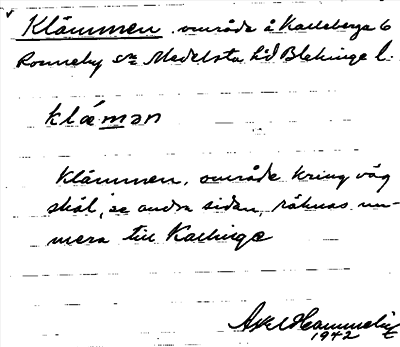 Klämmen, område å Karleberga 6
Ronneby sn Medelsta hd Blekinge l.
klámən
Klämmen, område kring väg
skäl, se andra sidan, räknas nu-
mera till Kallinge
Axel Hammelin
1942